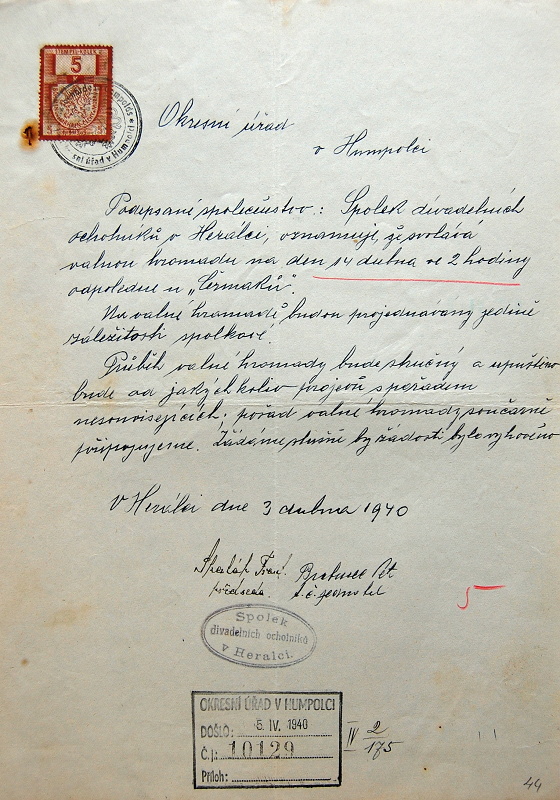 STEMPEL-KOLEK
5
sní úřad v Hump
Okresní úřad
v Humpolci
Podepsané společenstvo: Spolek divadelních
ochotníků v Herálci, oznamuje, že svolává
valnou hromadu na den 14 dubna ve 2 hodiny
odpoledne u „Čermaků".
Na valné hromadě budou projednávány jedině
záležitosti spolkové.
Průběh valné hromady bude stručný a upuštěno
bude od jakýchkoliv projevů s pořadem
nesouvisejících; pořad valné hromady současně
připojujeme. Žádáme slušně by žádosti bylo vyhověno
V Herálci dne 3 dubna 1940
Frant.
předseda. t.č. jednatel
Spolek
divadelních ochotníků
v Heralci.
5
OKRESNÍ ÚŘAD V HUMPOLCI
DOŠLO: 5. IV. 1940
Č.j.: 10129
Příloh:
IV 2/175
44